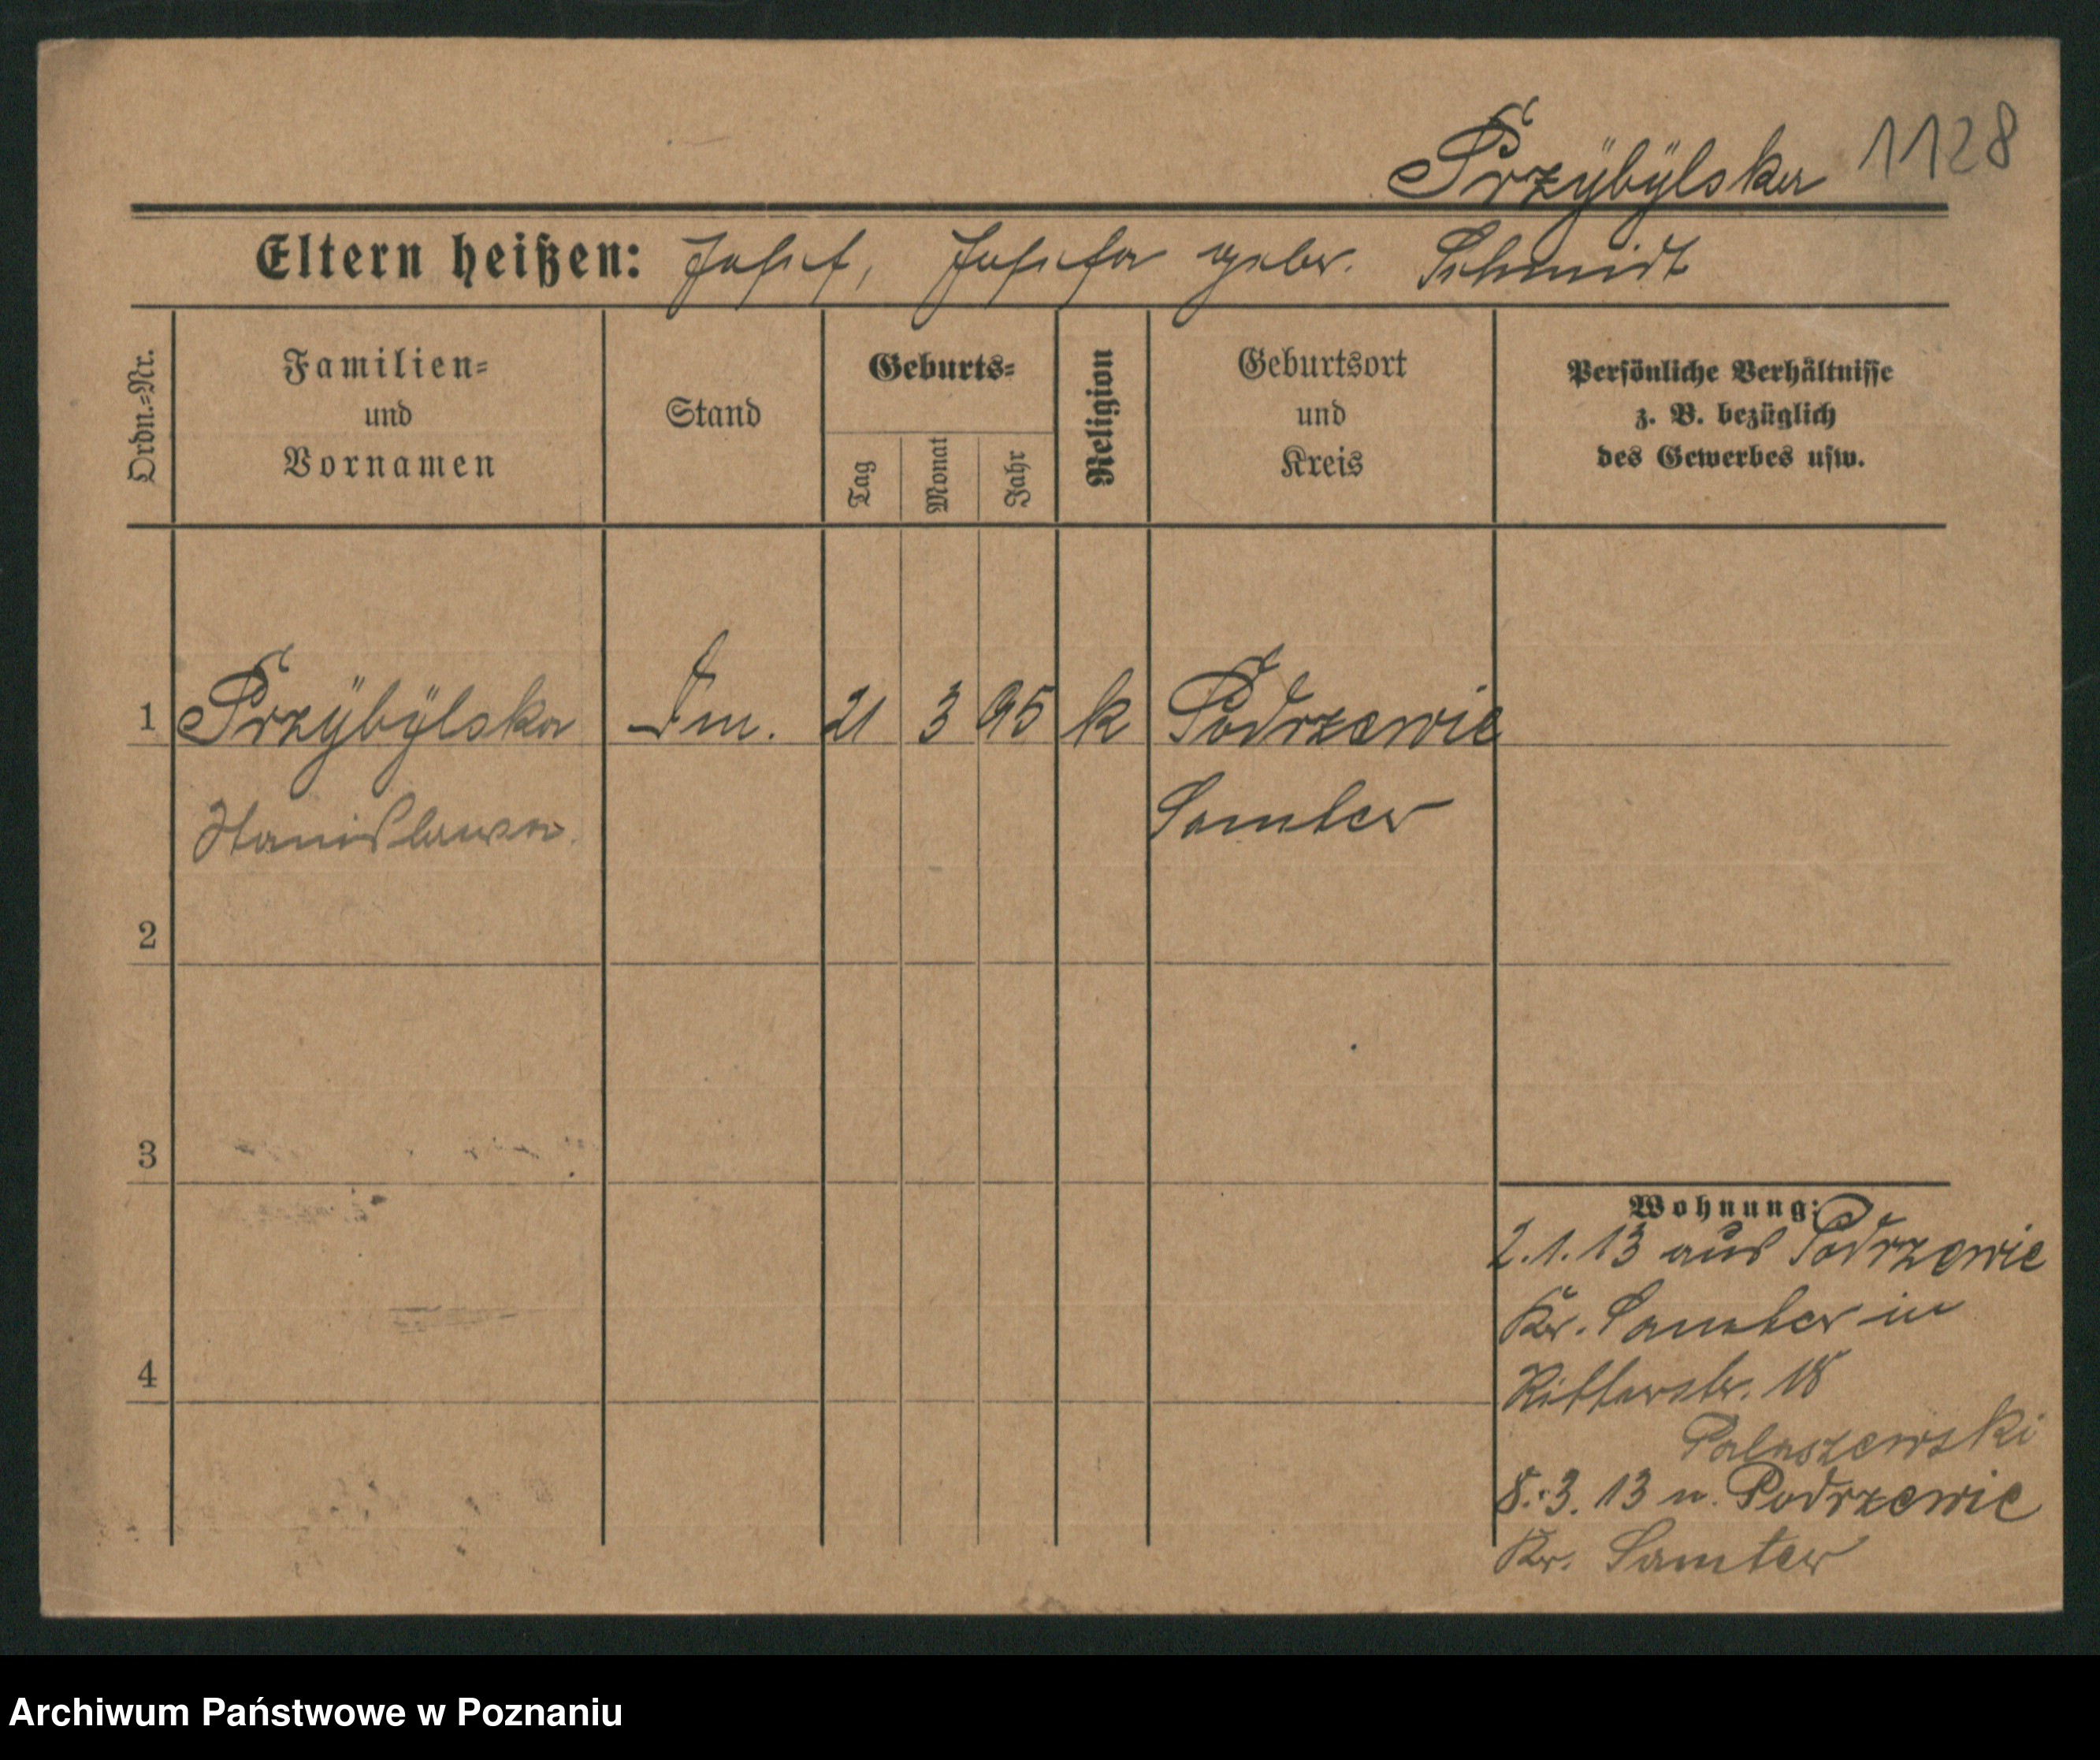 Przÿbÿlska 1128
Eltern heißen: Josef, Josefa geber. Schmidt
Ordn.-Nr.
Familien-
und
Vornamen
Stand
Geburts-
Tag
Monat
Jahr
Religion
Geburtsort
und
Kreis
Persönliche Verhältnisse
z. B. bezüglich
des Gewerbes usw.
1 Przÿbÿlska 21 3 95 k Podrzewie
Stanislawa. Samter
2
3
4
Wohnung:
2.1.13 aus Podrzewie
Kr. Samter in
Ritterstr. 18
Paluszewski
8.3.13 n. Podrzewie
Kr. Samter
Archiwum Państwowe w Poznaniu